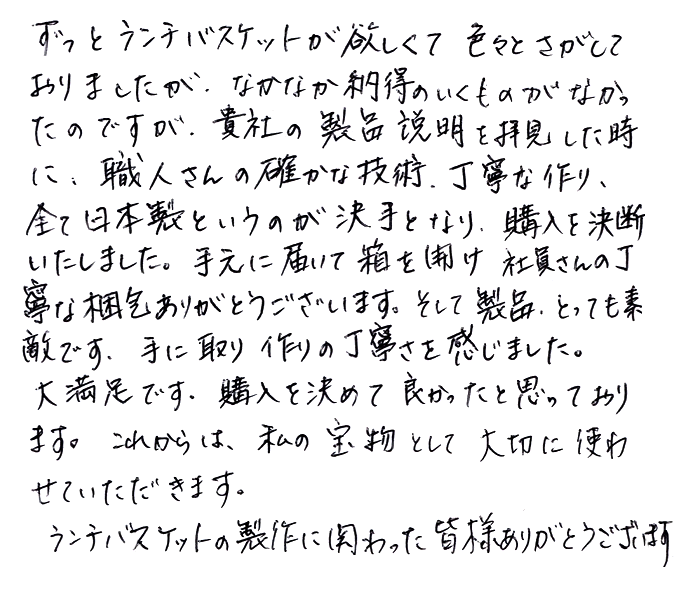 ずっとランチバスケットが欲しくて 色々とさがして
おりましたが、なかなか納得のいくものがなかっ
たのですが、貴社の製品説明を拝見した時
に、職人さんの確かな技術、丁寧な作り、
全て日本製というのが決手となり、購入を決断
いたしました。手元に届いて箱を開け 社員さんの丁
寧な梱包ありがとうございます。そして製品、とっても素
敵です、手に取り作りの丁寧さを感じました。
大満足です、購入を決めて良かったと思っており
ます。これからは、私の宝物として大切に使わ
せていただきます。
ランチバスケットの製作に関わった皆様ありがとうございます